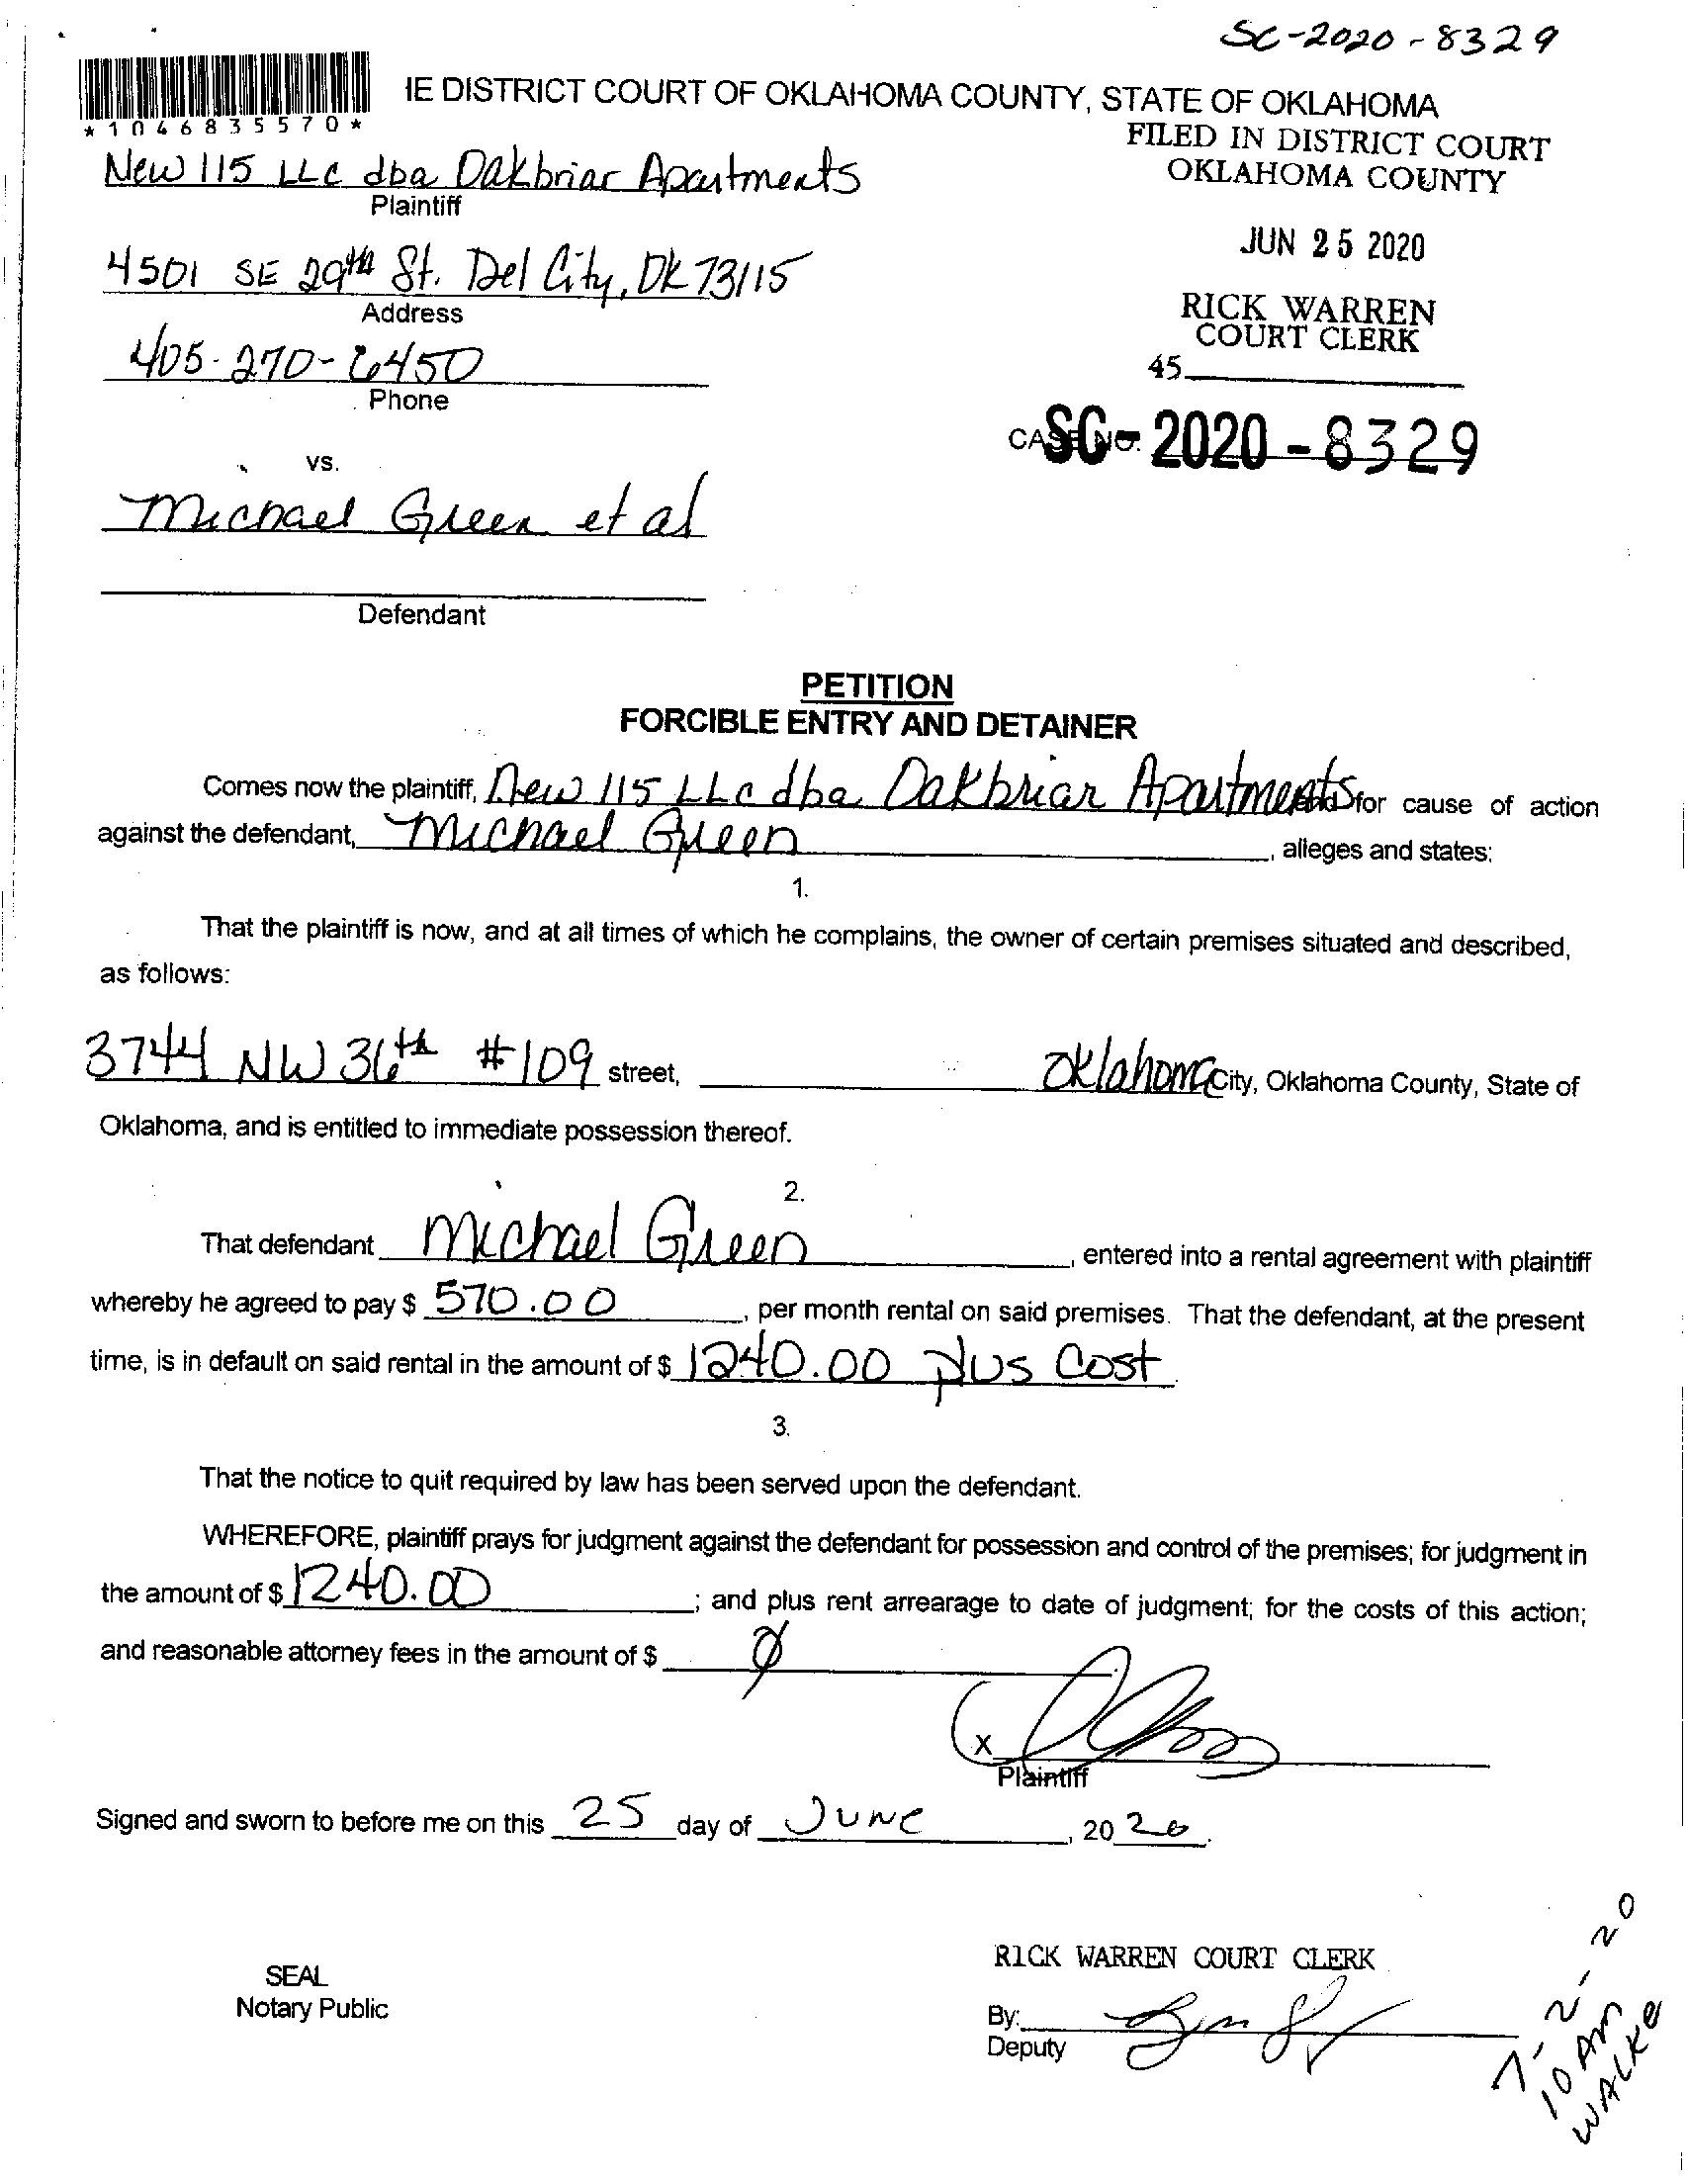 SC-2020-8329
IE DISTRICT COURT OF OKLAHOMA COUNTY, STATE OF OKLAHOMA
*1046835570*
FILED IN DISTRICT COURT
OKLAHOMA COUNTY
New 115 LLC dba Oakbriar Apartments
Plaintiff
JUN 25 2020
4501 SE 29th St. Del City, OK 73115
Address
RICK WARREN
COURT CLERK
405-270-6450
Phone
45
CASE NO.
SC-2020-8329
vs.
Michael Green et al
Defendant
PETITION
FORCIBLE ENTRY AND DETAINER
Comes now the plaintiff, New 115 LLC dba Oakbriar Apartments and for cause of action
against the defendant, Michael Green, alleges and states:
1.
That the plaintiff is now, and at all times of which he complains, the owner of certain premises situated and described,
as follows:
3744 NW 36th #109 street, Oklahoma City, Oklahoma County, State of
Oklahoma, and is entitled to immediate possession thereof.
2.
That defendant Michael Green, entered into a rental agreement with plaintiff
whereby he agreed to pay $ 570.00, per month rental on said premises. That the defendant, at the present
time, is in default on said rental in the amount of $ 1240.00 plus Cost.
3.
That the notice to quit required by law has been served upon the defendant.
WHEREFORE, plaintiff prays for judgment against the defendant for possession and control of the premises; for judgment in
the amount of $ 1240.00; and plus rent arrearage to date of judgment; for the costs of this action;
and reasonable attorney fees in the amount of $ Ø
X
Plaintiff
Signed and sworn to before me on this 25 day of June, 2020.
RICK WARREN COURT CLERK
SEAL
Notary Public
By:
Deputy
7-2-20
10 AM
WALKE